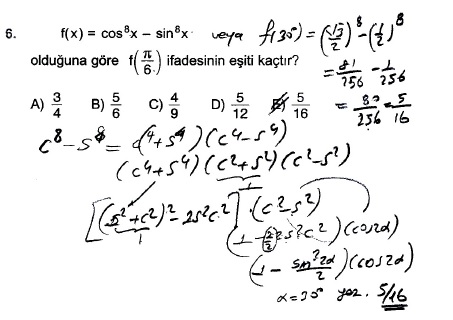 6. f(x) = cos⁸x – sin⁸x veya f(30°) = (√3/2)⁸ - (1/2)⁸
olduğuna göre f(π/6) ifadesinin eşiti kaçtır?
= 81/256 - 1/256
A) 3/4 B) 5/6 C) 4/9 D) 5/12 E) 5/16
= 80/256 = 5/16
c⁸ - s⁸ = (c⁴+s⁴)(c⁴-s⁴)
(c⁴+s⁴)(c²+s²)(c²-s²)
1
[(s²+c²)² - 2s²c²] · (c²-s²)
1
(1 - 2/2 2s²c²)(cos2α)
(1 - sin²2α/2)(cos2α)
α=30° yaz. 5/16